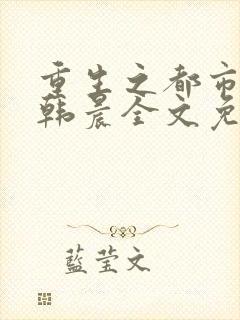 重生之都市
韩晨全文免
藍莹文